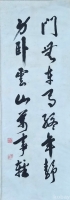 門無車馬終年靜
身臥雲山萬事輕